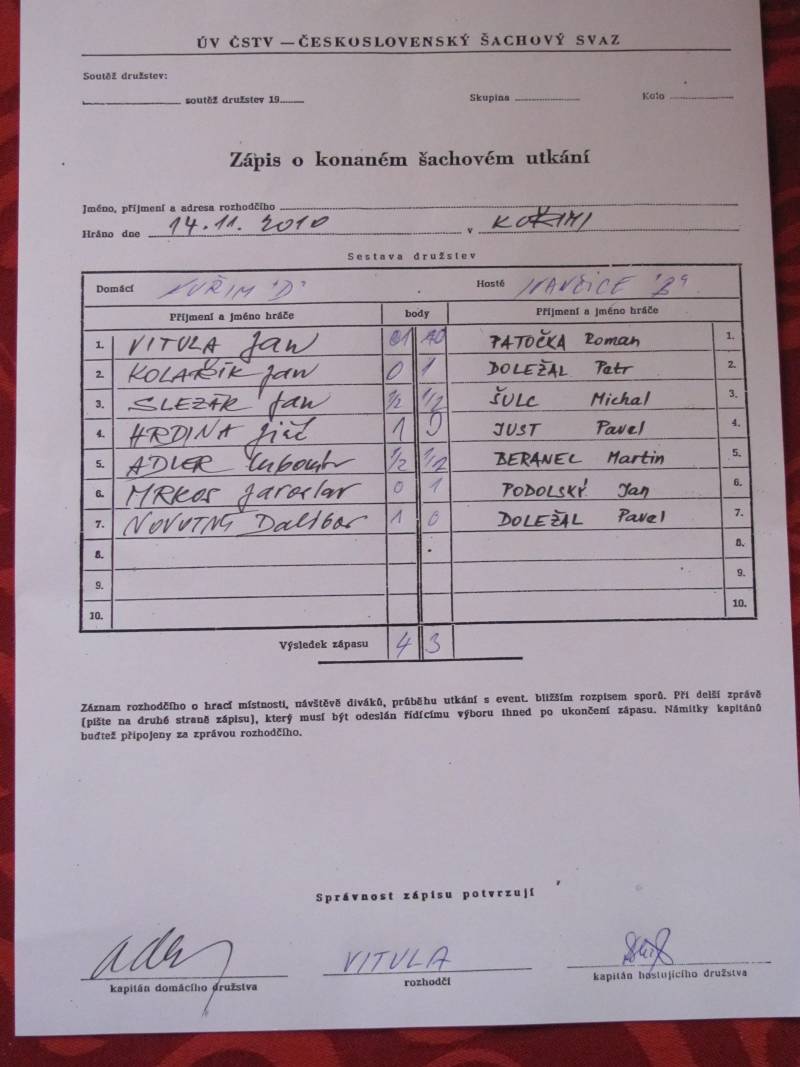 ÚV ČSTV — ČESKOSLOVENSKÝ ŠACHOVÝ SVAZ
Soutěž družstev:
soutěž družstev 19
Skupina
Kolo
Zápis o konaném šachovém utkání
Jméno, příjmení a adresa rozhodčího
Hráno dne 14.11. 2010 v KUŘIMI
Sestava družstev
Domácí KUŘIM "D" Hosté IVANČICE "B"
Příjmení a jméno hráče body Příjmení a jméno hráče
1. VITULA Jan 1 0 PATOČKA Roman 1.
2. KOLAŘÍK Jan 0 1 DOLEŽAL Petr 2.
3. SLEZÁK Jan 1/2 1/2 ŠULC Michal 3.
4. HRDINA Jiří 1 0 JUST Pavel 4.
5. ADLER Lubomír 1/2 1/2 BERANEL Martin 5.
6. MRKOS Jaroslav 0 1 PODOLSKÝ Jan 6.
7. NOVOTNÝ Dalibor 1 0 DOLEŽAL Pavel 7.
8. 8.
9. 9.
10. 10.
Výsledek zápasu 4 3
Záznam rozhodčího o hrací místnosti, návštěvě diváků, průběhu utkání s event. bližším rozpisem sporů. Při delší zprávě
(pište na druhé straně zápisu), který musí být odeslán řídícímu výboru ihned po ukončení zápasu. Námitky kapitánů
buďtež připojeny za zprávou rozhodčího.
Správnost zápisu potvrzují
VITULA
kapitán domácího družstva
rozhodčí
kapitán hostujícího družstva